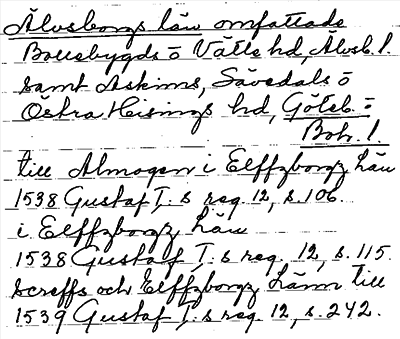 Älvsborgs län omfattade
Bollebygds o Vätle hd, Älvsb. l.
samt Askims, Sävedals o
Östra Hisings hd, Göteb. o
Boh. l.
till Almogen i Elffzborgz Län
1538 Gustaf I. s reg. 12, s. 106.
i Elffzborgz Län
1538 Gustaf I. s reg. 12, s. 115.
Screffs och Elffzborgz Länn till
1539 Gustaf I. s reg. 12, s. 242.